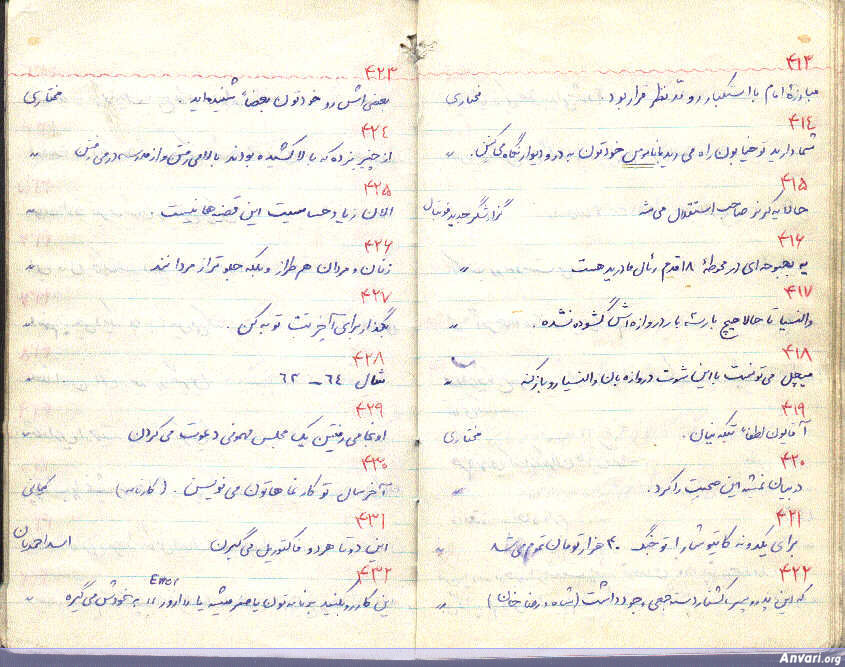 ۴۱۳
مبارزهٔ امام با استکبار رو در نظر قرار بود مختاری
۴۱۴
شما دارید تو خیابون راه می‌رید با ناموس خودتون به در و دیوار نگاه می‌کنین. "
۴۱۵
حالا یه کرنر صاحب استقلال می‌شه گزارشگر جدید فوتبال
۴۱۶
یه بحبوحه‌ای در محوطهٔ ۱۸ قدم رئال مادرید هست "
۴۱۷
والنسیا تا حالا هیچ بار سه بار دروازه‌اش گشوده نشده. "
۴۱۸
میچل می‌تونست با این شوت دروازه‌بان والنسیا رو باز کنه "
۴۱۹
آقایون لطفاً تکیه نیان. مختاری
۴۲۰
در بیان نمیشه این صحبت را کرد. "
۴۲۱
برای یکدونه کانتو شما را تو جنگ ۴۰ هزار تومان تموم می‌شد "
۴۲۲
که این پدر و پسر کشتار دسته جمعی وجود داشت (شاه و رضا خان) "
۴۲۳
بعضی‌اش رو خودتون بعضاً شنیده‌اید مختاری
۴۲۴
از چیز نرده که بالا کشیده بودند بالا می‌رفتن و از مدرسه در می‌رفتن "
۴۲۵
الان زیاد حساسیت این قضیه‌ها نیست "
۴۲۶
زنان و مردان هم‌طراز و بلکه جلوتر از مردانند "
۴۲۷
بگذار برای آخر نت توبه کن. "
۴۲۸
شمال ۶۴ – ۶۲ "
۴۲۹
اونجا می‌رفتین یک مجلس مهمونی دعوت می‌کردن "
۴۳۰
آخر سال تو کارنماهاتون می‌نویسن. (کارنامه)
۴۳۱
این دو تا هر دو فاکتوریل می‌گیرن اسداحمدیان
۴۳۲
Error
این کار رو بکنید برنامه‌تون یا صفر میشه یا ارور به خودش می‌گیره "
Anvari.org